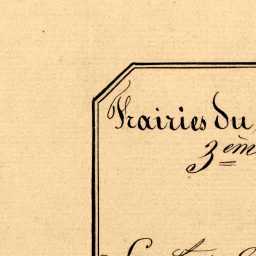 Prairies du
3ème